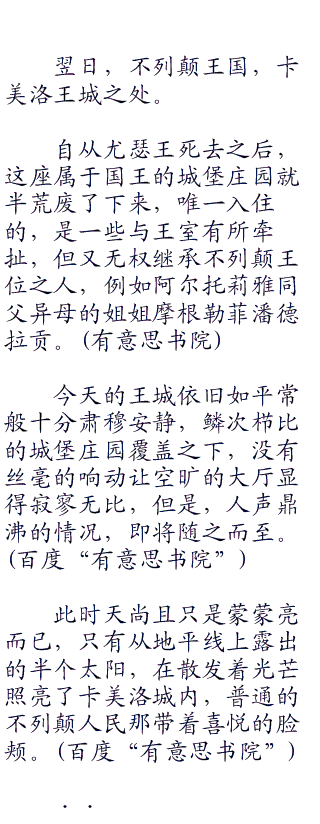 翌日，不列颠王国，卡
美洛王城之处。
自从尤瑟王死去之后，
这座属于国王的城堡庄园就
半荒废了下来，唯一入住
的，是一些与王室有所牵
扯，但又无权继承不列颠王
位之人，例如阿尔托莉雅同
父异母的姐姐摩根勒菲潘德
拉贡。(有意思书院)
今天的王城依旧如平常
般十分肃穆安静，鳞次栉比
的城堡庄园覆盖之下，没有
丝毫的响动让空旷的大厅显
得寂寥无比，但是，人声鼎
沸的情况，即将随之而至。
(百度“有意思书院”)
此时天尚且只是蒙蒙亮
而已，只有从地平线上露出
的半个太阳，在散发着光芒
照亮了卡美洛城内，普通的
不列颠人民那带着喜悦的脸
颊。(百度“有意思书院”)
．．